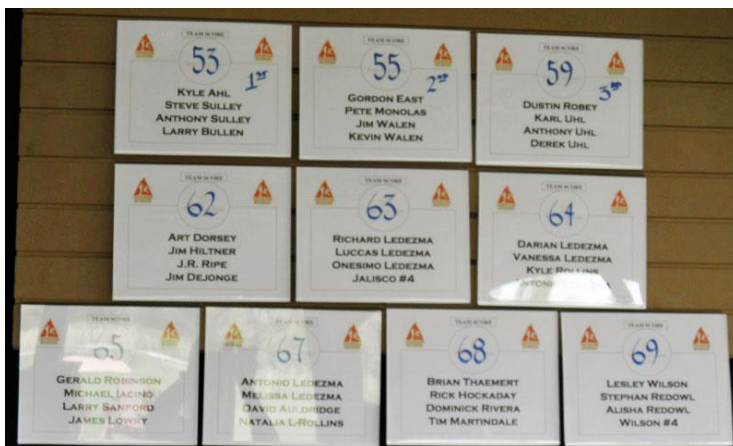 TEAM SCORE
53
1st
KYLE AHL
STEVE SULLEY
ANTHONY SULLEY
LARRY BULLEN
TEAM SCORE
55
2nd
GORDON EAST
PETE MONOLAS
JIM WALEN
KEVIN WALEN
TEAM SCORE
59
3rd
DUSTIN ROBEY
KARL UHL
ANTHONY UHL
DEREK UHL
TEAM SCORE
62
ART DORSEY
JIM HILTNER
J.R. RIPE
JIM DEJONGE
TEAM SCORE
63
RICHARD LEDEZMA
LUCCAS LEDEZMA
ONESIMO LEDEZMA
JALISCO #4
TEAM SCORE
64
DARIAN LEDEZMA
VANESSA LEDEZMA
KYLE ROLLINS
TEAM SCORE
65
GERALD ROBINSON
MICHAEL IACINO
LARRY SANFORD
JAMES LOWRY
TEAM SCORE
67
ANTONIO LEDEZMA
MELISSA LEDEZMA
DAVID AULDRIDGE
NATALIA L-ROLLINS
TEAM SCORE
68
BRIAN THAEMERT
RICK HOCKADAY
DOMINICK RIVERA
TIM MARTINDALE
TEAM SCORE
69
LESLEY WILSON
STEPHAN REDOWL
ALISHA REDOWL
WILSON #4